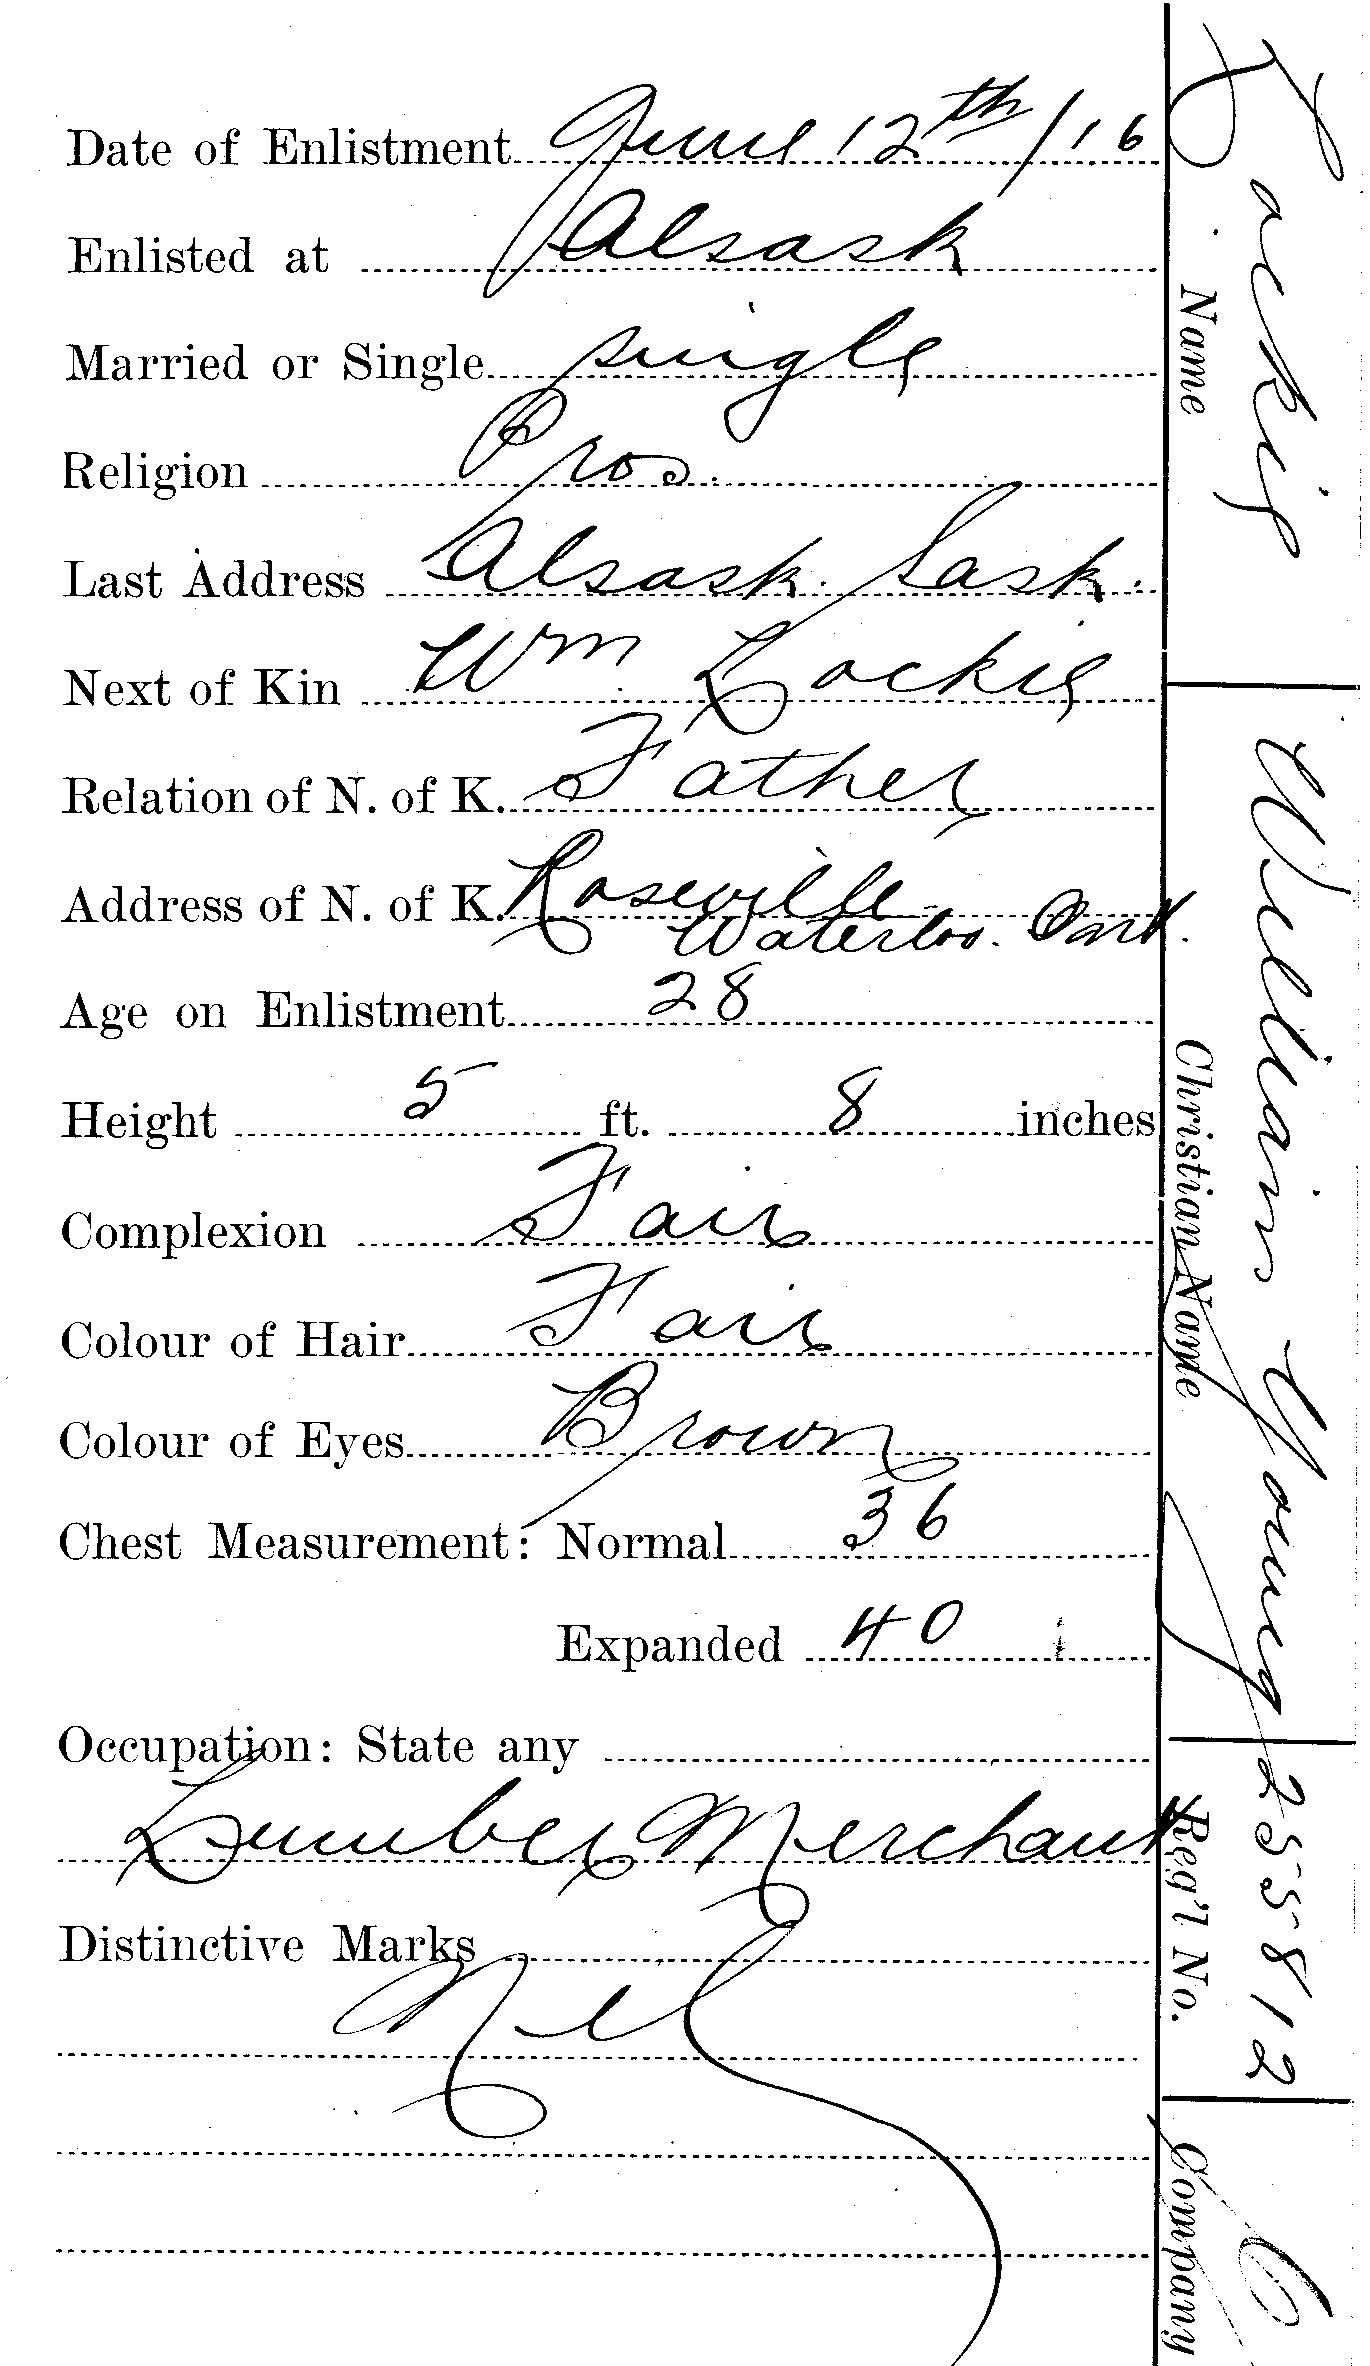 Date of Enlistment June 12th/16
Enlisted at Alsask
Married or Single single
Religion Pros.
Last Address Alsask. Sask.
Next of Kin Wm Lockie
Relation of N. of K. Father
Address of N. of K. Roseville
Waterloo. Ont.
Age on Enlistment 28
Height 5 ft. 8 inches
Complexion Fair
Colour of Hair Fair
Colour of Eyes Brown
Chest Measurement: Normal 36
Expanded 40
Occupation: State any
Lumber Merchant
Distinctive Marks
Nil
Lockie William Young 255812 C
Name Christian Name Reg'l No. Company